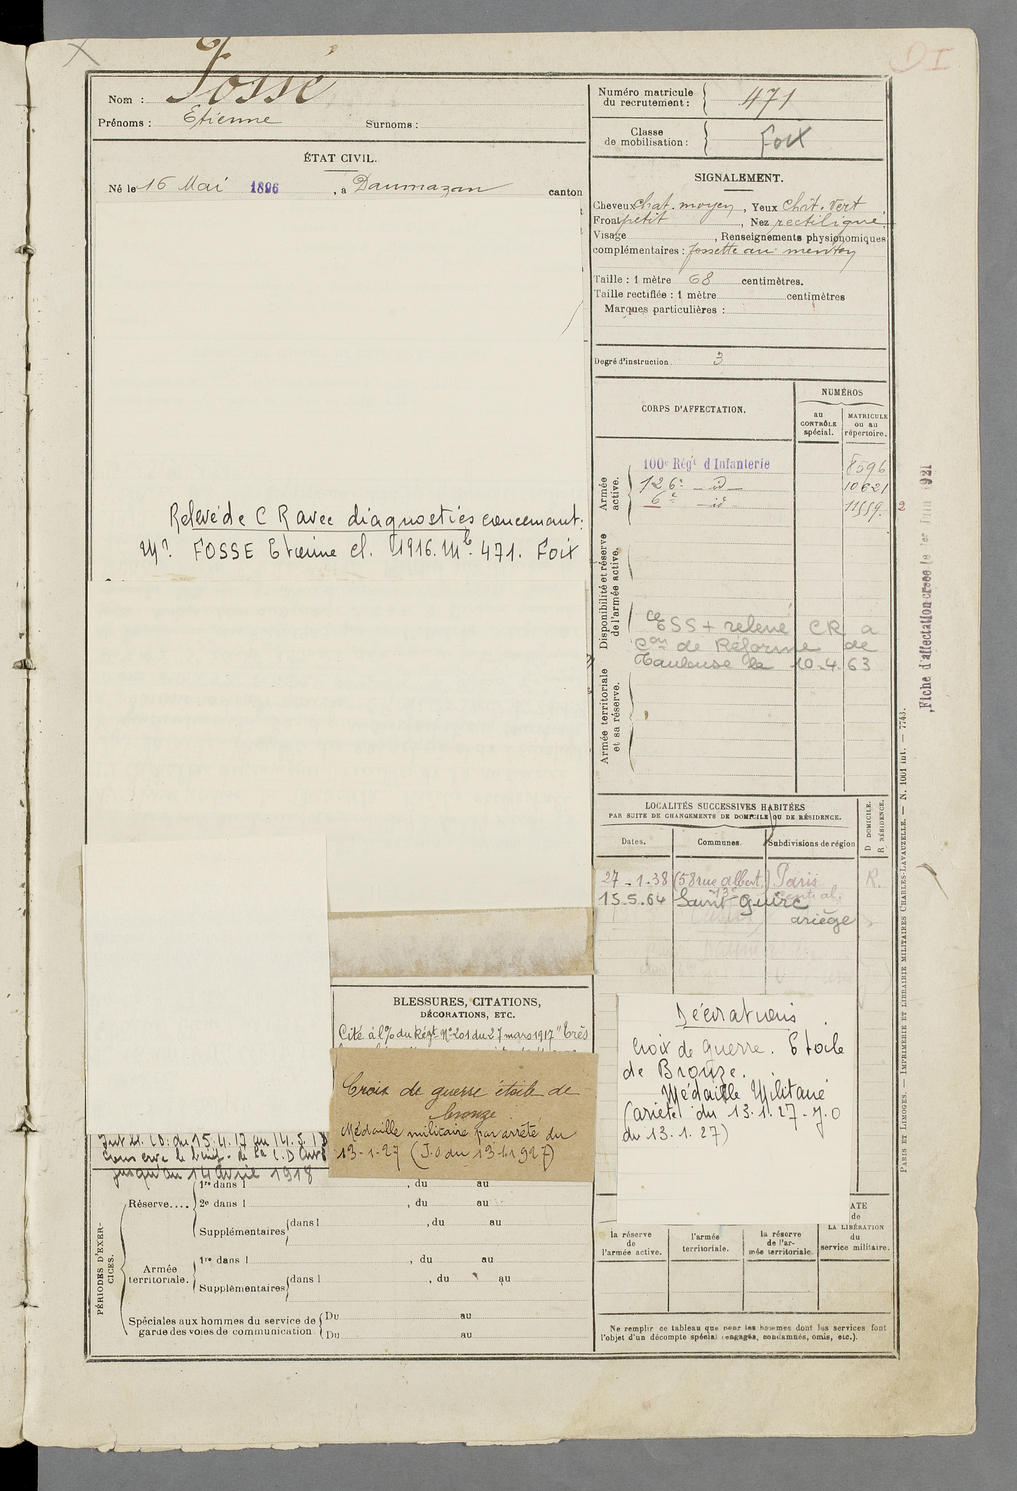 Nom : Fossé
Prénoms : Etienne Surnoms :
ÉTAT CIVIL.
Né le 16 Mai 1896, à Daumazan canton
Relevé de C R avec diagnostics concernant :
Mr FOSSE Etienne cl. 1916. Mle 471. Foix
BLESSURES, CITATIONS,
DÉCORATIONS, ETC.
Cité à l'O du Régt No 201 du 27 mars 1917 "Très
Croix de guerre étoile de
bronze
Médaille militaire par arrêté du
13-1-27 (J.O du 13-1-1927)
Int. du 15.4.17 au 14.3.18
jusqu'au 14 Avril 1918
PÉRIODES D'EXERCICES.
1re dans l , du au
Réserve.... 2e dans l , du au
Supplémentaires dans l , du au
1re dans l , du au
Armée
territoriale.
Supplémentaires dans l , du au
Spéciales aux hommes du service de Du au
garde des voies de communication Du au
DI
Numéro matricule
du recrutement : 471
Classe
de mobilisation : Foix
SIGNALEMENT.
Cheveux chât. moyen, Yeux chât. vert
Front petit, Nez rectiligne
Visage , Renseignements physionomiques
complémentaires : fossette au menton
Taille : 1 mètre 68 centimètres.
Taille rectifiée : 1 mètre centimètres
Marques particulières :
Degré d'instruction 3
CORPS D'AFFECTATION.
NUMÉROS
au
CONTRÔLE
spécial.
MATRICULE
ou au
répertoire.
Armée
active.
100e Régt d'Infanterie 8596
126e id 10621
6e id 11559. 2
Disponibilité et réserve
de l'armée active.
ESS + relevé CR a
Con de Réforme de
Toulouse le 10.4.63
Armée territoriale
et sa réserve.
LOCALITÉS SUCCESSIVES HABITÉES
PAR SUITE DE CHANGEMENTS DE DOMICILE OU DE RÉSIDENCE.
D DOMICILE.
R RÉSIDENCE.
Dates. Communes. Subdivisions de région
27-1-38 (58 rue Albert) Paris R.
13e central
15.5.64 Saint Quirc
ariège
Décorations
Croix de Guerre. Etoile
de Bronze.
Médaille Militaire
(arrêté du 13.1.27 - J.O
du 13.1.27)
DATE
de
LA LIBÉRATION
du
service militaire.
la réserve
de
l'armée active.
l'armée
territoriale.
la réserve
de l'armée territoriale.
Ne remplir ce tableau que pour les hommes dont les services font
l'objet d'un décompte spécial (engagés, condamnés, omis, etc.).
PARIS ET LIMOGES. — IMPRIMERIE ET LIBRAIRIE MILITAIRES CHARLES-LAVAUZELLE. — N. 1001 int. — 7743.
Fiche d'affectation créée le 1er Juin 1921